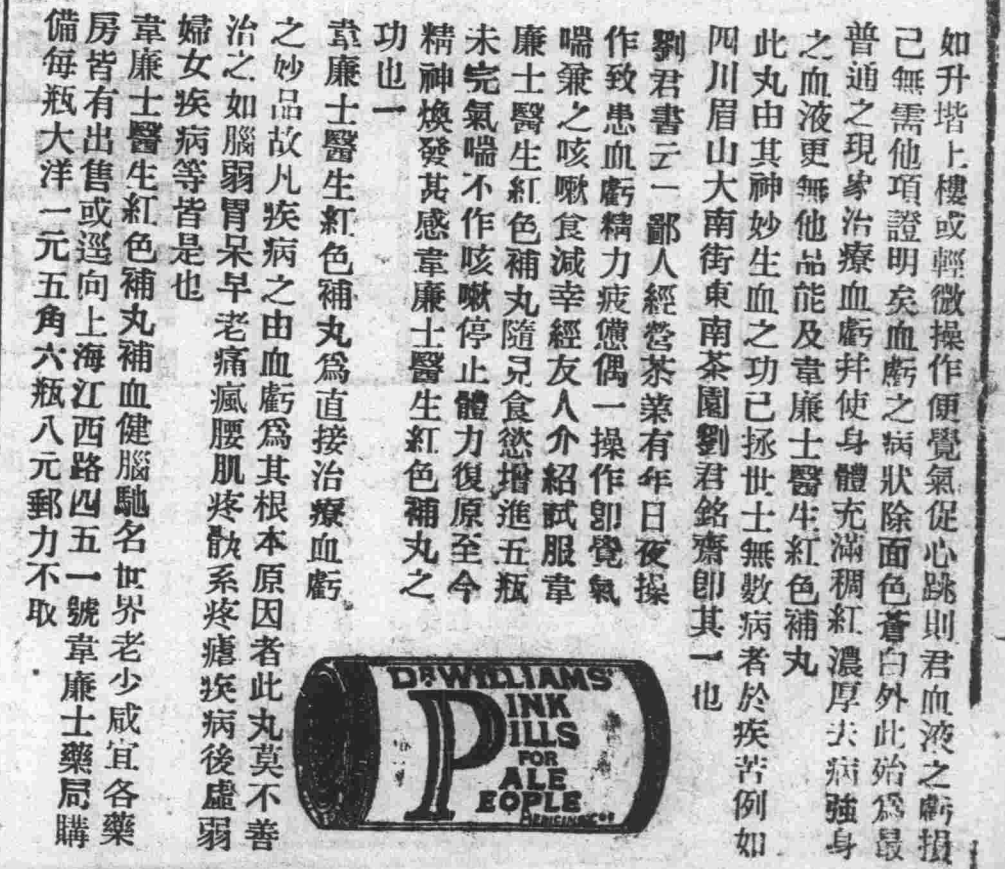 如升堦上樓或輕微操作便覺氣促心跳則君血液之虧損
己無需他項證明矣血虧之病狀除面色蒼白外此殆爲最
普通之現象治療血虧幷使身體充滿稠紅濃厚去病強身
之血液更無他品能及韋廉士醫生紅色補丸
此丸由其神妙生血之功己拯世士無數病者於疾苦例如
四川眉山大南街東南茶園劉君銘齋卽其一也
劉君書云一鄙人經營茶業有年日夜操
作致患血虧精力疲憊偶一操作卽覺氣
喘兼之咳嗽食減幸經友人介紹試服韋
廉士醫生紅色補丸隨見食慾增進五瓶
未完氣喘不作咳嗽停止體力復原至今
精神煥發甚感韋廉士醫生紅色補丸之
功也一
韋廉士醫生紅色補丸爲直接治療血虧
之妙品故凡疾病之由血虧爲其根本原因者此丸莫不善
治之如腦弱胃呆早老痛瘋腰肌疼骰系疼瘧疾病後虛弱
婦女疾病等皆是也
韋廉士醫生紅色補丸補血健腦馳名世界老少咸宜各藥
房皆有出售或逕向上海江西路四五一號韋廉士藥局購
備每瓶大洋一元五角六瓶八元郵力不取
DR WILLIAMS'
PINK
PILLS
FOR
PALE
PEOPLE
MEDICINE Co